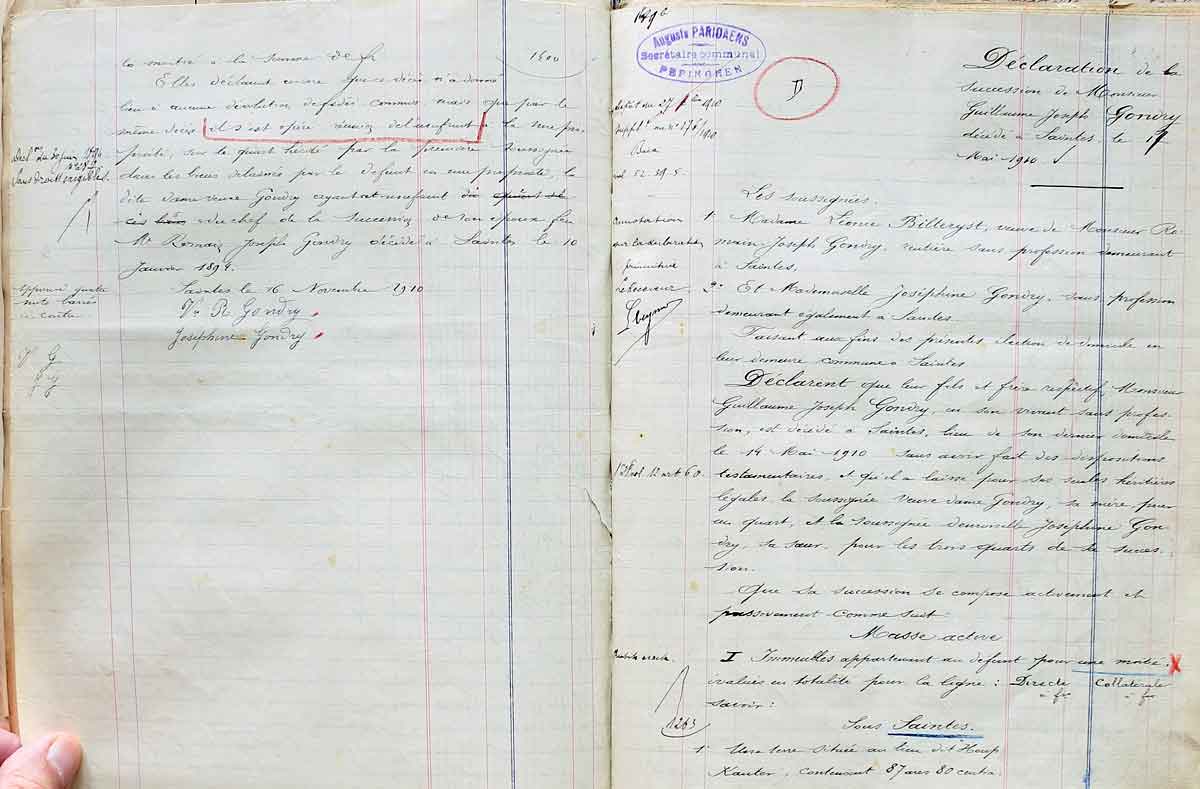 la moitié à la somme de fr 1500
Elles déclarent encore que ce décès n'a donné
lieu à aucune dévolution de fidéi commis mais que par le
même décès il s'est opéré réunion de l'usufruit à la nue pro-
priété, sur le quart hérité par la première soussignée
dans les biens délaissés par le défunt en nue propriété, la
dite dame veuve Gondry ayant un usufruit
du chef de la succession de son époux feu
Mr Romain Joseph Gondry décédé à Saintes le 10
Janvier 1894.
Saintes le 16 Novembre 1910
Ve R Gondry
Joséphine Gondry
Sans droits exigibles.
Approuvé quatre
mots barrés
ci-contre
V G
J G
Auguste PARIDAENS
Secrétaire communal
PEPINGHEN
D
Déclaration de la
succession de Monsieur
Guillaume Joseph Gondry
décédé à Saintes, le 14
Mai 1910
Les soussignées.
1° Madame Léonie Billeryst, veuve de Monsieur Ro-
main-Joseph Gondry, rentière sans profession demeurant
à Saintes,
2° Et Mademoiselle Joséphine Gondry, sans profession
demeurant également à Saintes
Faisant aux fins des présentes élection de domicile en
leur demeure commune à Saintes
Déclarent que leur fils et frère respectif, Monsieur
Guillaume Joseph Gondry, en son vivant sans profes-
sion, est décédé à Saintes, lieu de son dernier domicile
le 14 Mai 1910 sans avoir fait des dispositions
testamentaires, et qu'il a laissé pour ses seules héritières
légales, la soussignée Veuve dame Gondry, sa mère pour
un quart, et la soussignée demoiselle Joséphine Gon-
dry, sa sœur, pour les trois quarts de sa succes-
sion.
Que sa succession se compose activement et
passivement comme suit
Masse active
I Immeubles appartenant au défunt pour une moitié X
évalués en totalité pour la ligne : Directe Collatérale
savoir : à fr à fr
Sous Saintes.
1° Une terre située au lieu dit Houp
Kanter, contenant 87 ares 80 centia.
annotation
sur la déclaration
primitive
1263